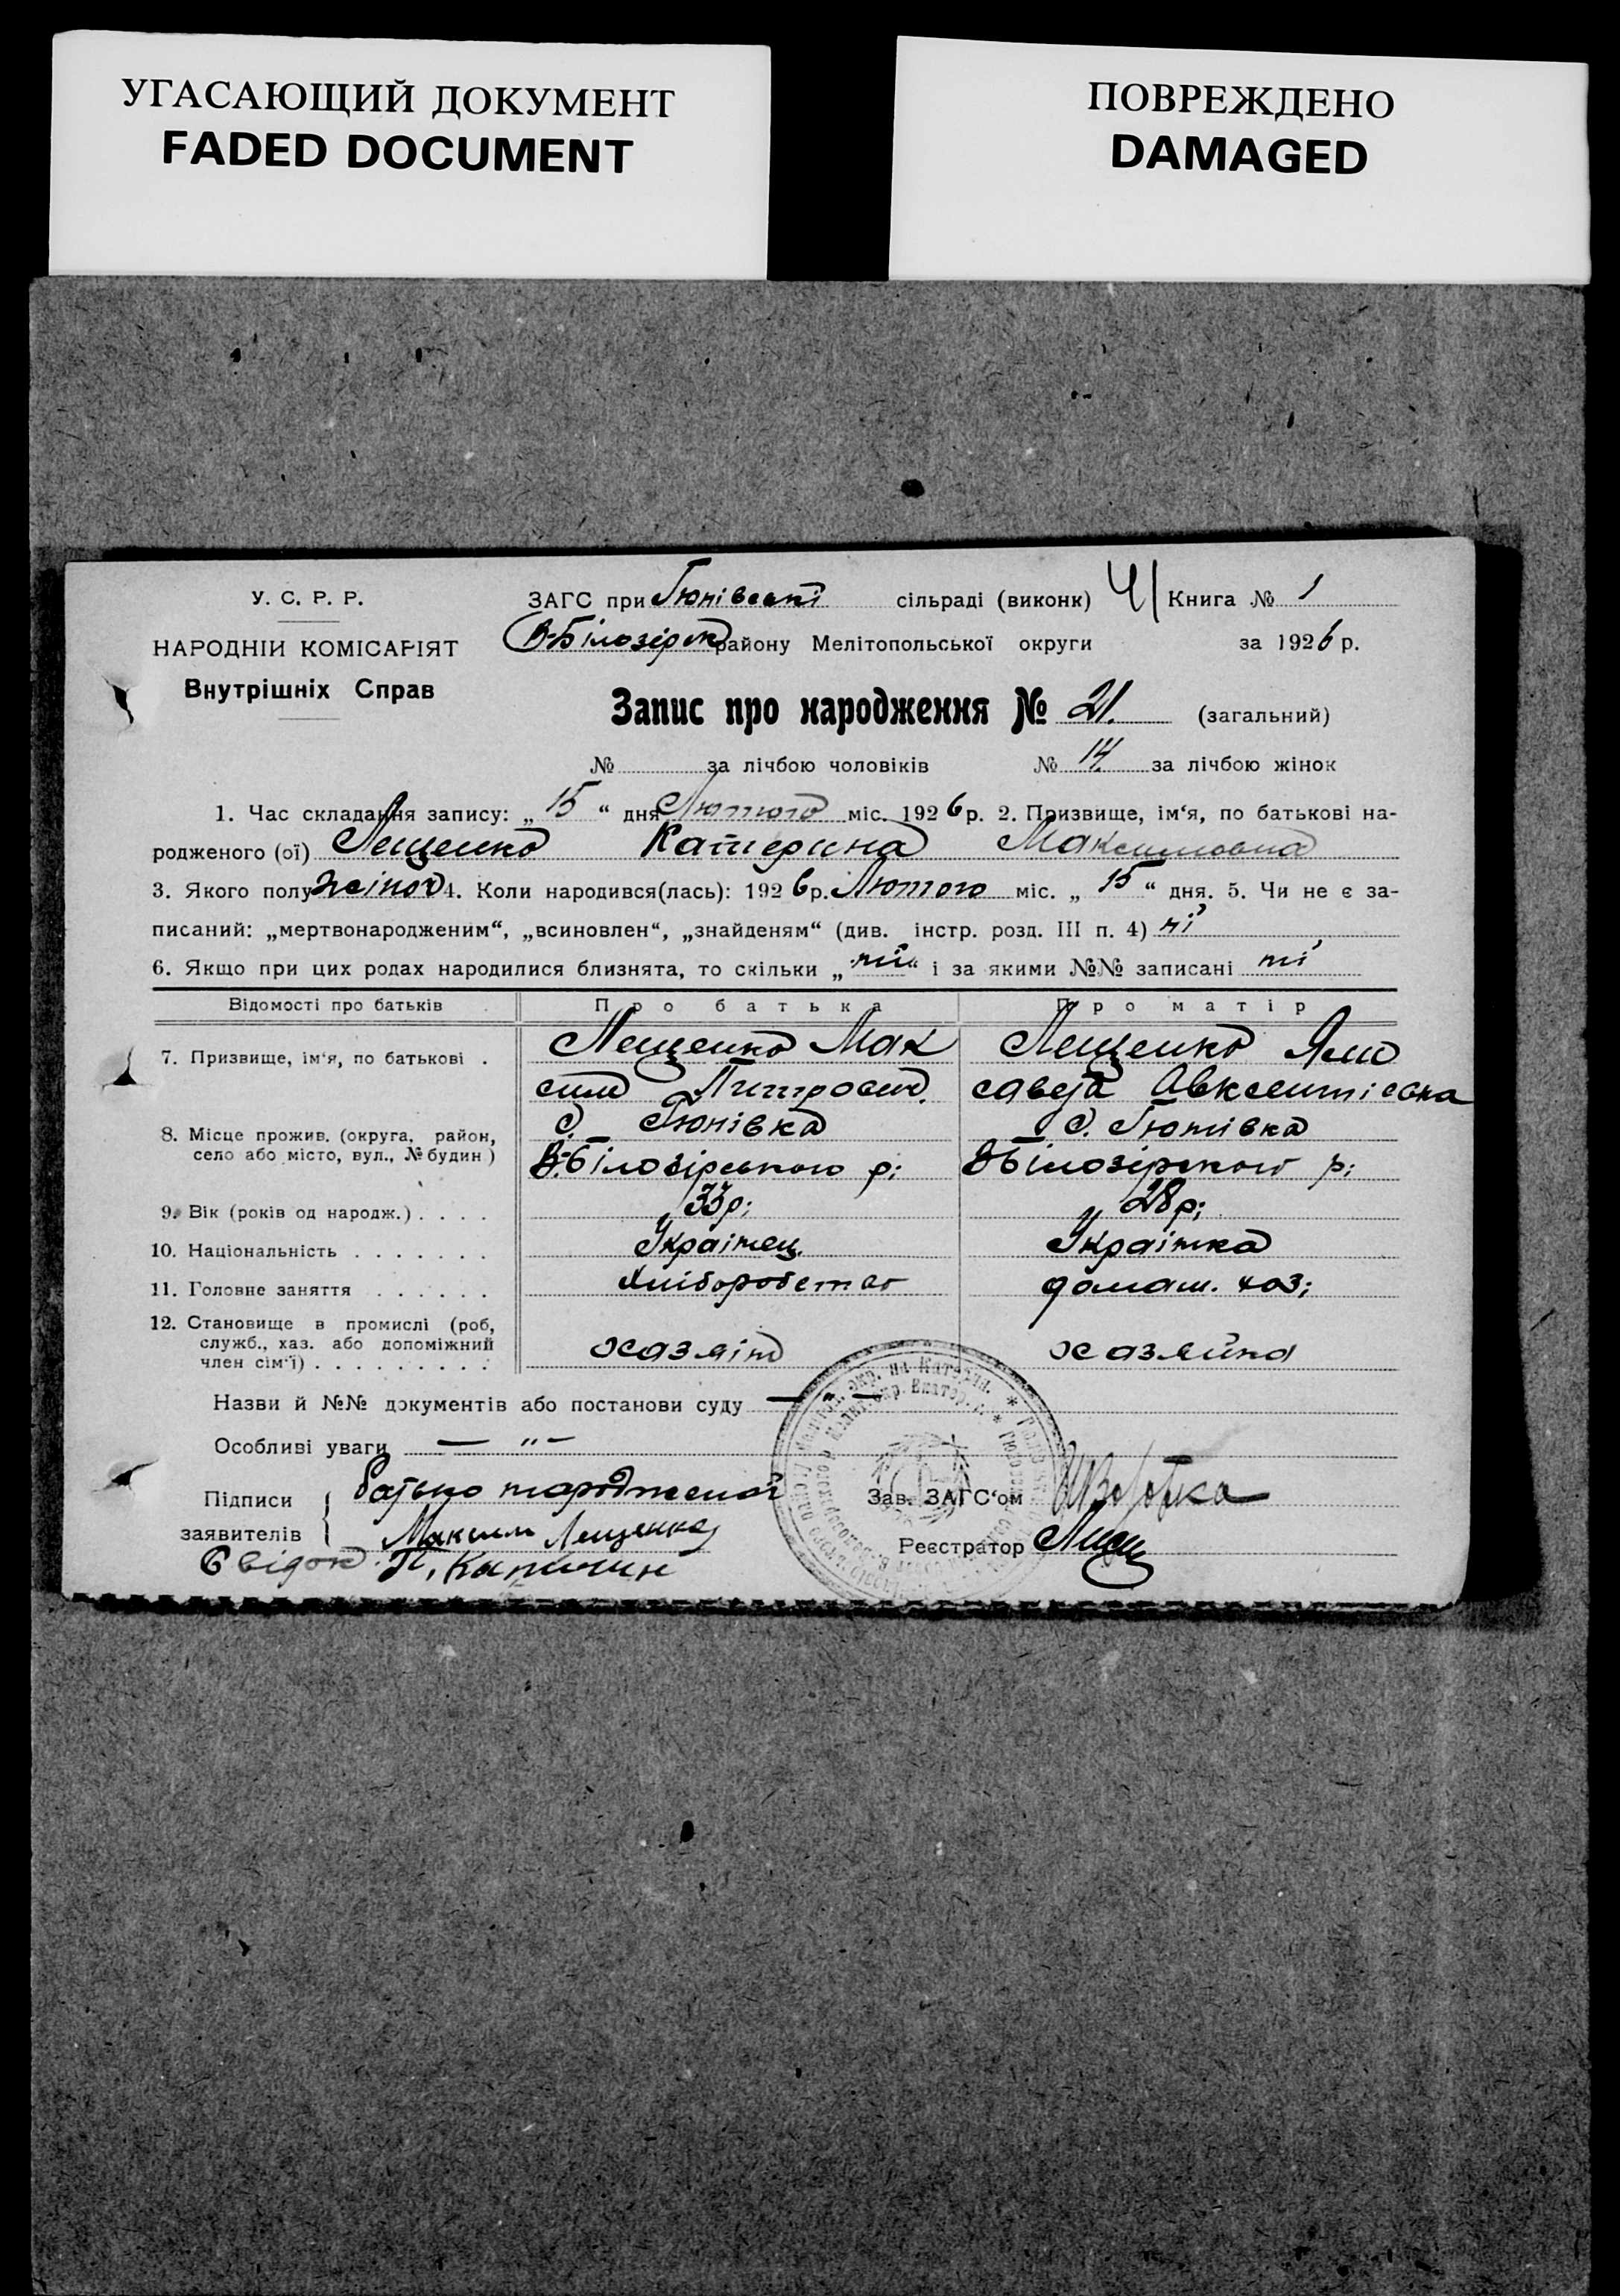 УГАСАЮЩИЙ ДОКУМЕНТ
FADED DOCUMENT
ПОВРЕЖДЕНО
DAMAGED
У. С. Р. Р.
НАРОДНІЙ КОМІСАРІЯТ
Внутрішніх Справ
ЗАГС при Гюнівські сільраді (виконк) Книга № 1
В-Білозірск району Мелітопольської округи за 1926 р.
Запис про народження № 21. (загальний)
№ за лічбою чоловіків № 14. за лічбою жінок
1. Час складання запису: „ 15 “ дня Лютого міс. 1926 р. 2. Призвище, ім‘я, по батькові на-
родженого (ої) Лещенко Катерина Максимовна
3. Якого полу жіноч 4. Коли народився(лась): 1926 р. Лютого міс. „ 15 “ дня. 5. Чи не є за-
писаний: „мертвонародженим“, „всиновлен“, „знайденям“ (див. інстр. розд. III п. 4) ні
6. Якщо при цих родах народилися близнята, то скільки „ ні “ і за якими №№ записані ні
Відомості про батьків Про батька Про матір
7. Призвище, ім‘я, по батькові . Лещенко Мак Лещенко Яли
сим Питрович. савета Авксентієвна
8. Місце прожив. (округа, район, с. Гюнівка с. Гюнівка
село або місто, вул., № будин) В.-Білозірського р; В Білозірского р;
9. Вік (років од народж.) . . . . 33 р; 28 р;
10. Національність . . . . . . . Українец. Українка
11. Головне заняття . . . . . . Хліборобство домаш. хоз;
12. Становище в промислі (роб,
служб., хаз. або допоміжний
член сім‘ї) . . . . . . . . . хазяїн хазяйка
Назви й №№ документів або постанови суду — „ —
Особливі уваги — „ —
Підписи
заявителів
батько народженой
Максим Лещенко
Свідок
Зав. ЗАГС‘ом
Реєстратор